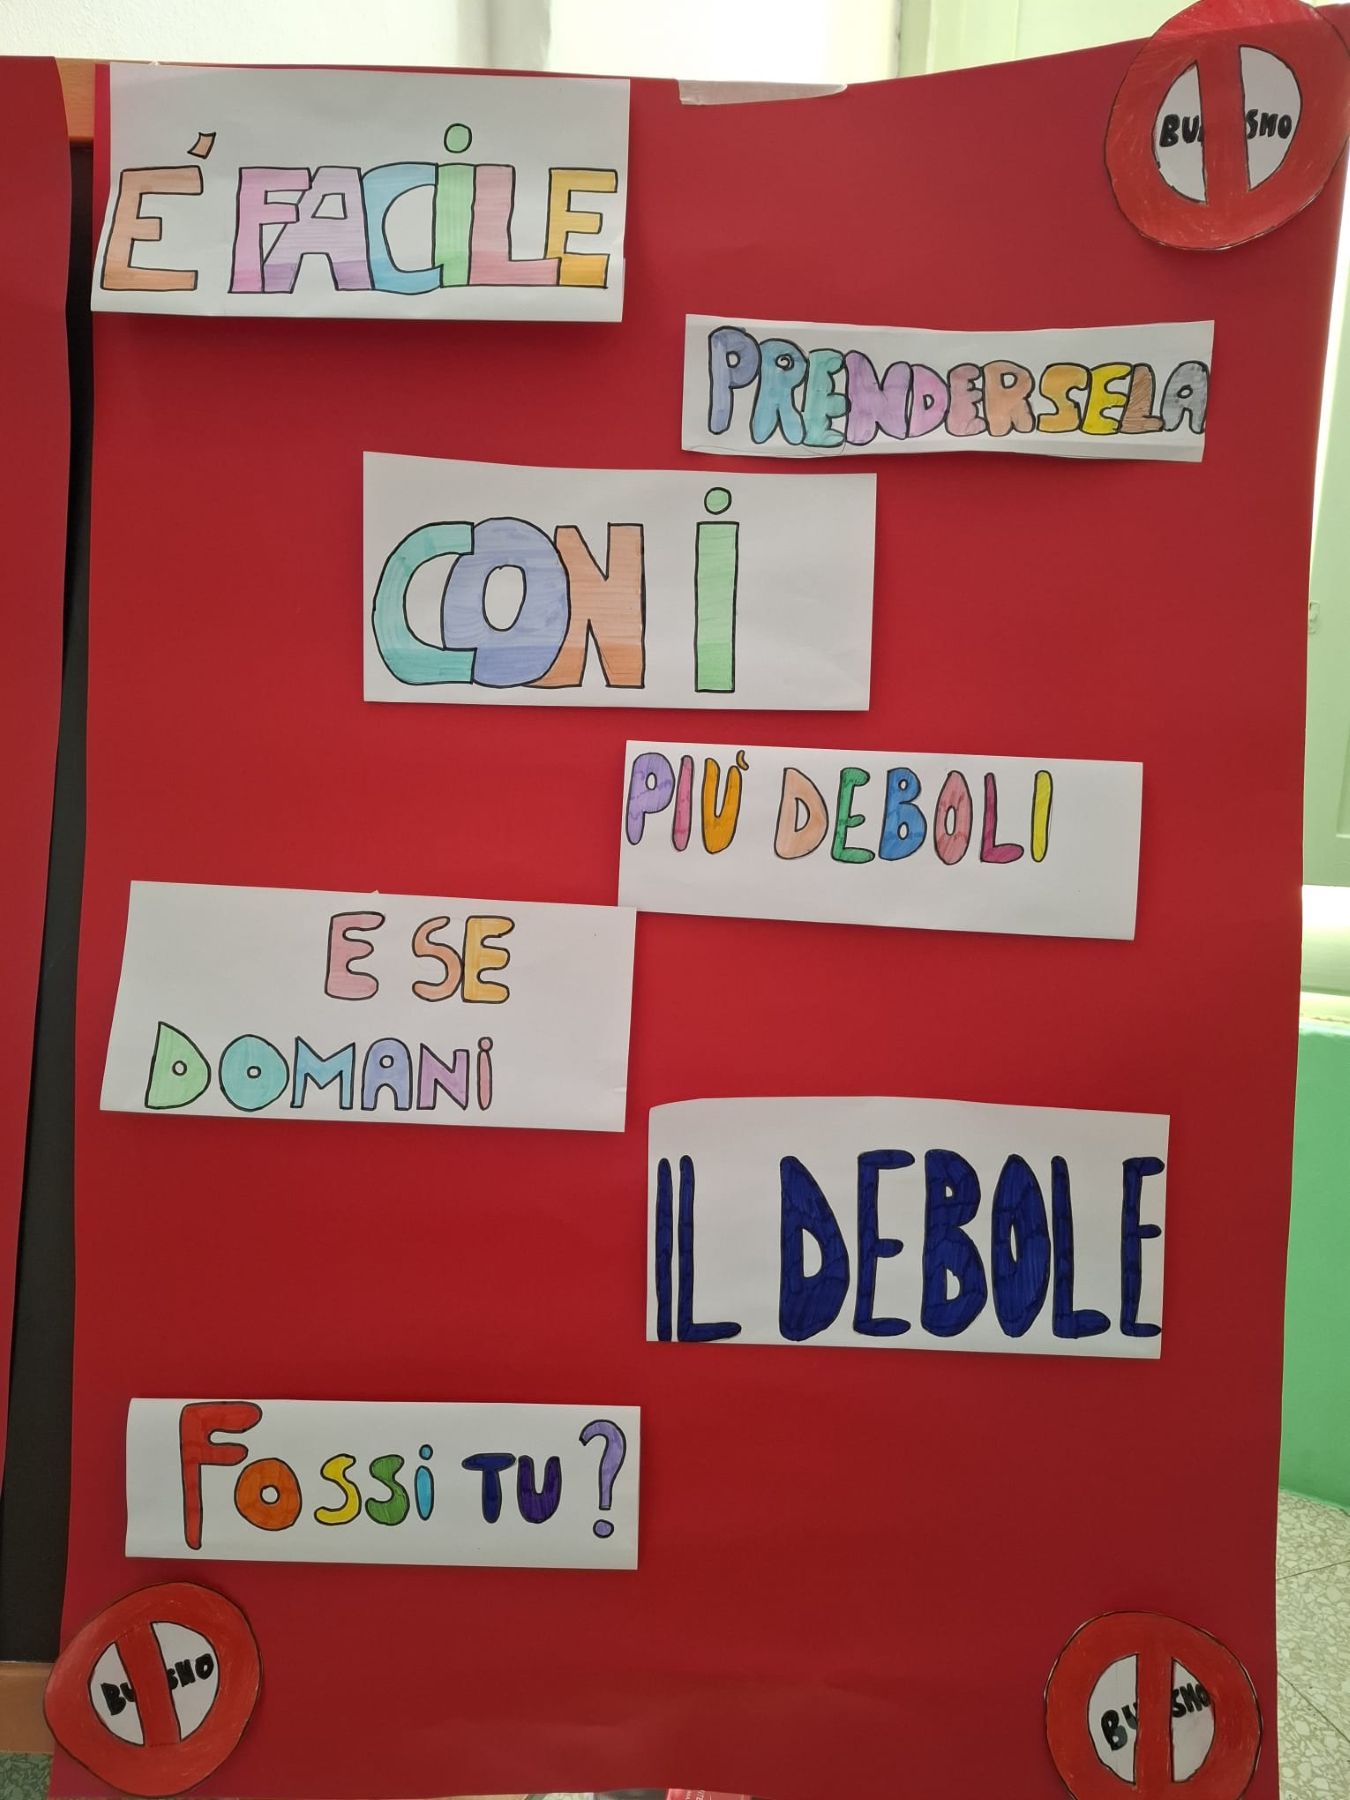 BU SMO
É FACILE
PRENDERSELA
CON I
PIÙ DEBOLI
E SE
DOMANI
IL DEBOLE
FOSSI TU?
BU SMO
BU SMO